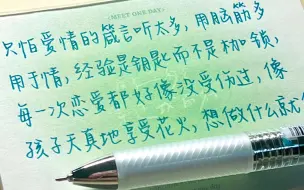 MEET ONE DAY
只怕爱情的箴言听太多,用脑筋多
用于情,经验是钥匙而不是枷锁,
每一次恋爱都好像没受伤过,像
孩子天真地享受花火,想做什么就